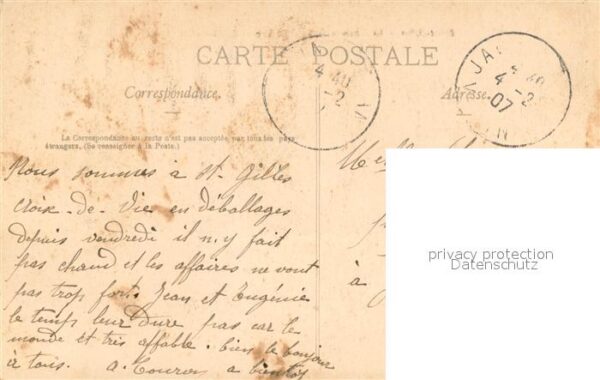 CARTE POSTALE
Correspondance.
Adresse.
La Correspondance au recto n'est pas acceptée par tous les pays
étrangers. (Se renseigner à la Poste.)
Nous sommes à St. Gilles
croix-de-Vie en déballages
depuis vendredi il n,y fait
pas chaud et les affaires ne vont
pas trop fort. Jean et Eugénie
le temps leur Dure pas car le
monde et très affable. bien le bonjour
à tous. a bientôt
à
privacy protection
Datenschutz
4
07